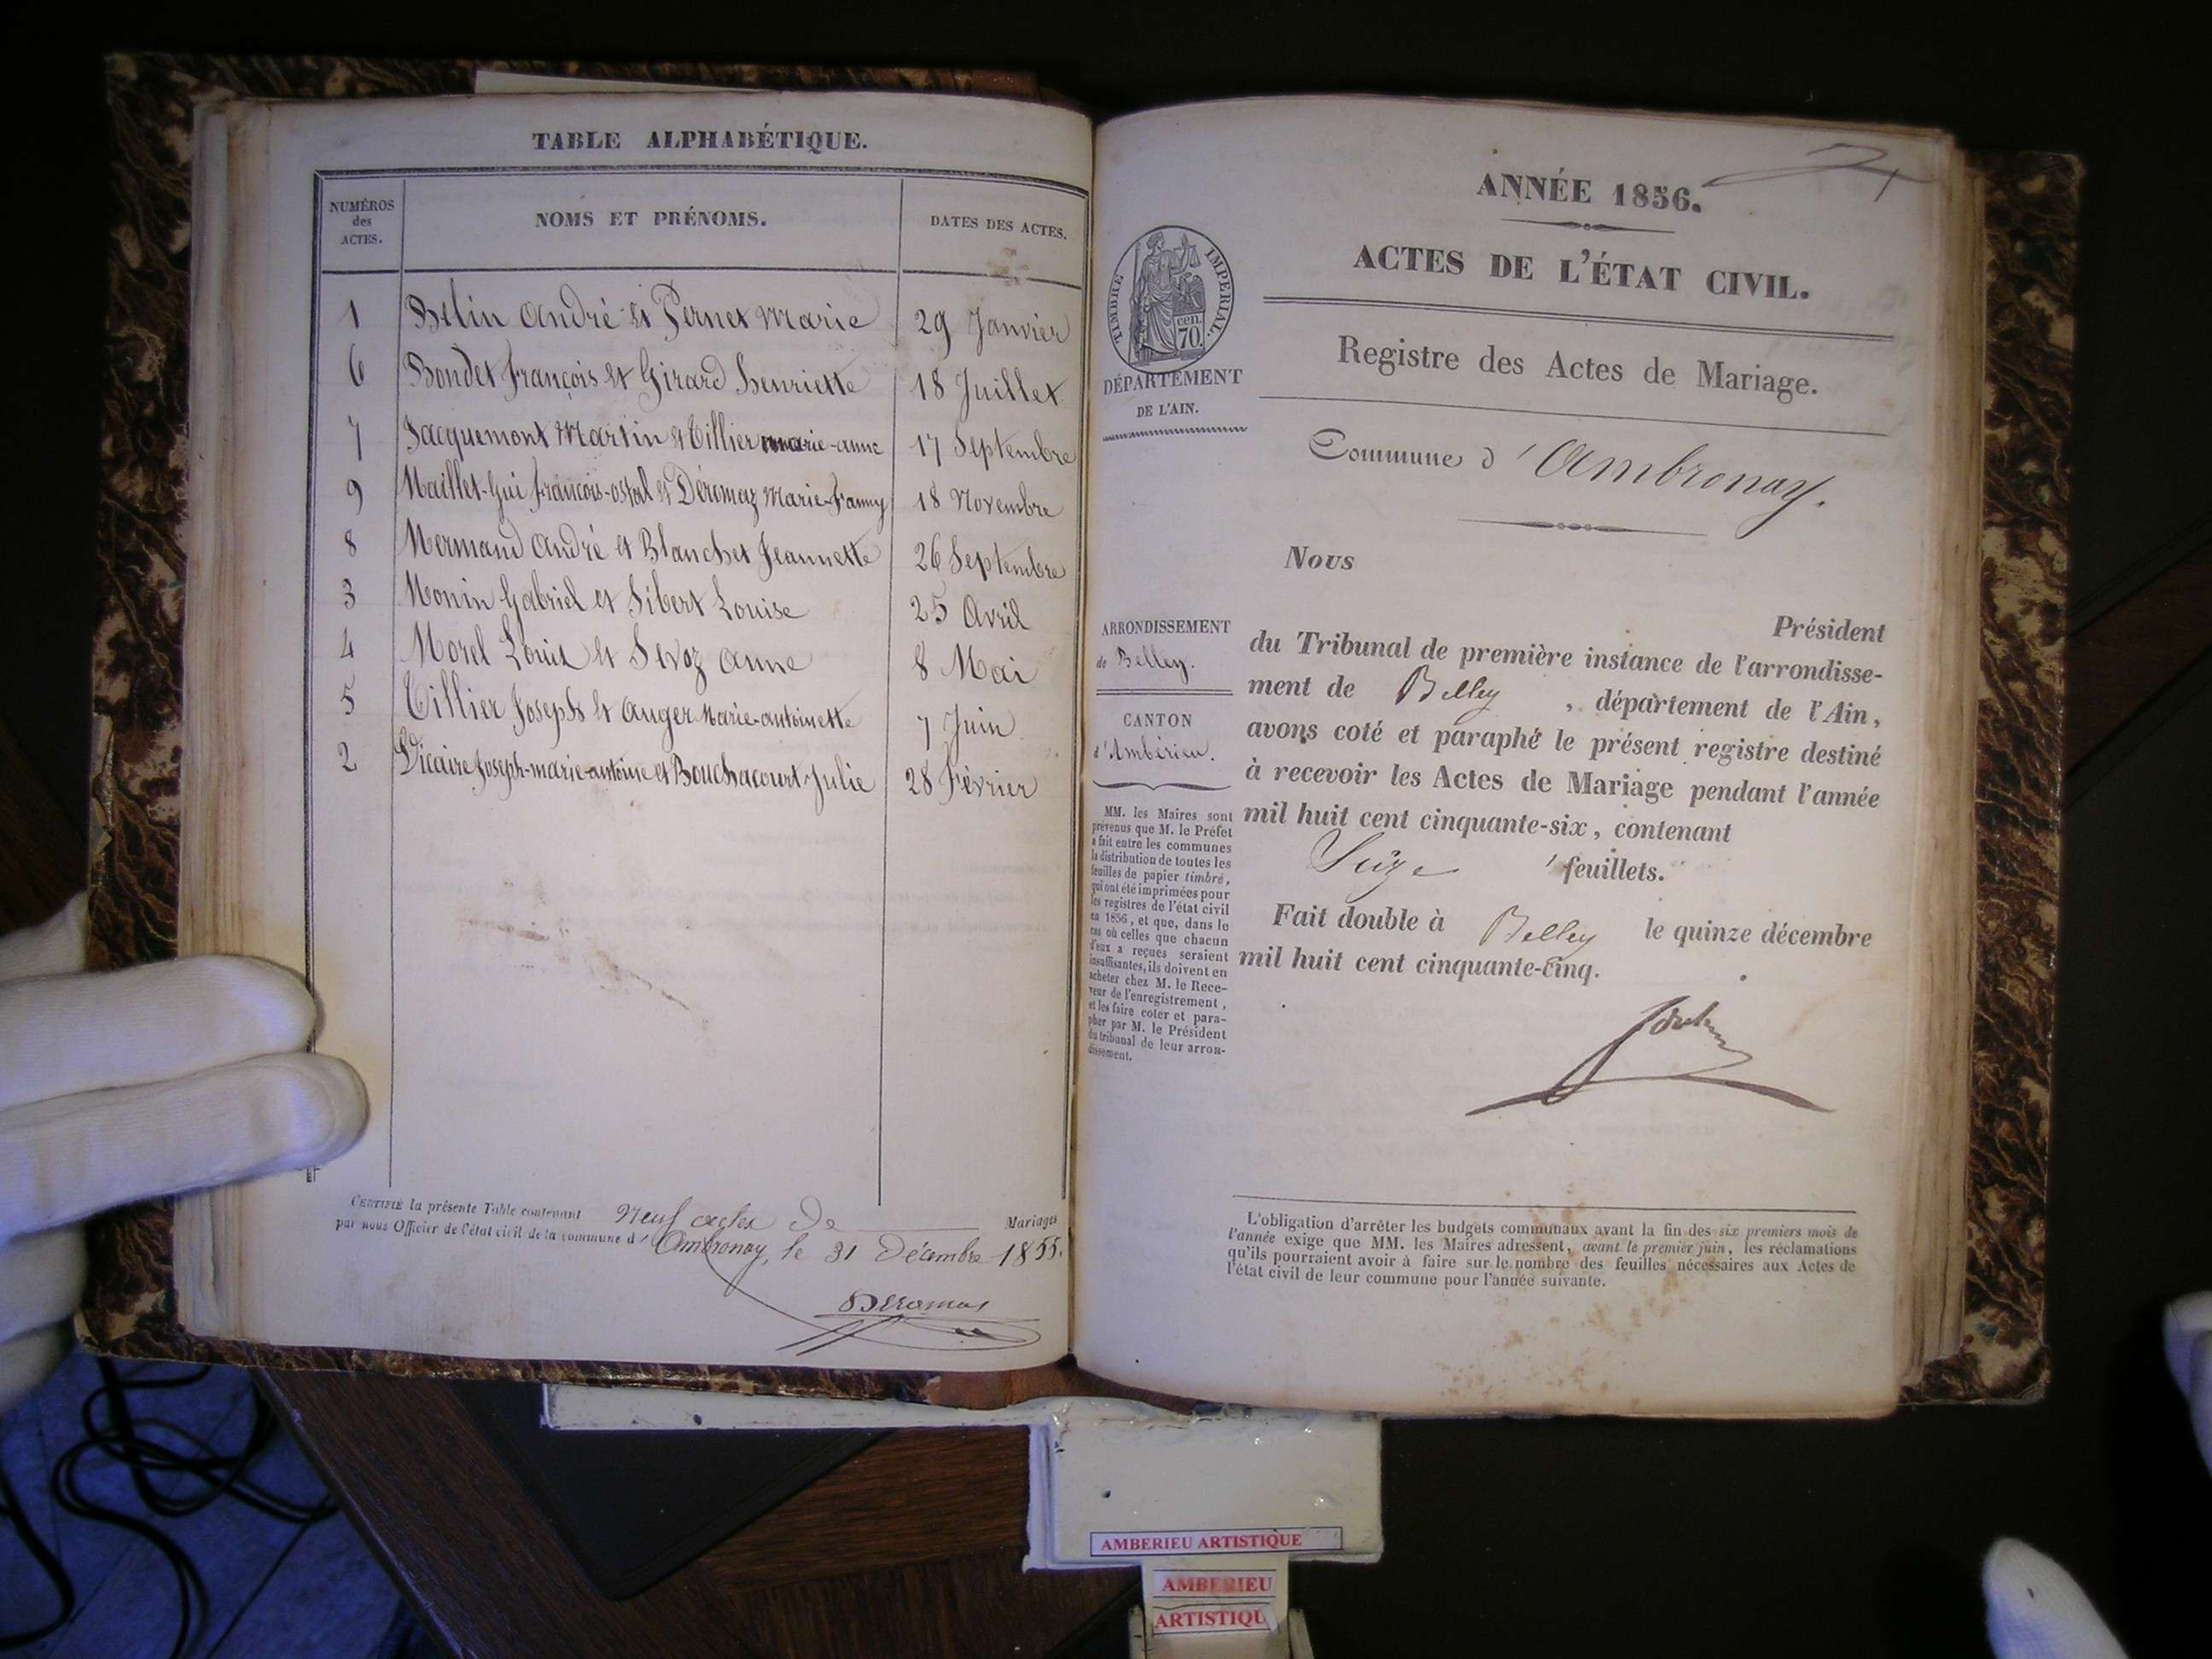 TABLE ALPHABÉTIQUE.
NUMÉROS
des
ACTES.
NOMS ET PRÉNOMS.
DATES DES ACTES.
1 Belin André et Pernet Marie 29 Janvier
6 Bondet François et Girard henriette 18 Juillet
7 Jacquemont Martin et Tillier marie-anne 17 Septembre
9 Maillet-Gui françois- et Déromaz Marie-Fanny 18 Novembre
8 Mermand André et Blanchet Jeannette 26 Septembre
3 Monin Gabriel et Sibert Louise 25 Avril
4 Morel Louis et Sevoz anne 8 Mai
5 Tillier Joseph et Auger Marie-antoinette 7 Juin
2 Vicaire Joseph-marie-antoine et Bouchacourt Julie 28 Février
CERTIFIÉ la présente Table contenant Neuf actes de Mariages
par nous Officier de l'état civil de la commune d' Ambronay, le 31 décembre 1855.
Deromas
ANNÉE 1856.
ACTES DE L'ÉTAT CIVIL.
TIMBRE IMPÉRIAL.
cen.
70.
DÉPARTEMENT
DE L'AIN.
Registre des Actes de Mariage.
Commune d'Ambronay.
Nous
Président
ARRONDISSEMENT
de Belley.
CANTON
d'Ambérieu.
du Tribunal de première instance de l'arrondisse-
ment de Belley , département de l'Ain,
avons coté et paraphé le présent registre destiné
à recevoir les Actes de Mariage pendant l'année
mil huit cent cinquante-six, contenant
Seize feuillets.
Fait double à Belley le quinze décembre
mil huit cent cinquante-cinq.
MM. les Maires sont
prévenus que M. le Préfet
a fait entre les communes
la distribution de toutes les
feuilles de papier timbré,
qui ont été imprimées pour
les registres de l'état civil
en 1856, et que, dans le
cas où celles que chacun
d'eux a reçues seraient
insuffisantes, ils doivent en
acheter chez M. le Rece-
veur de l'enregistrement,
et les faire coter et para-
pher par M. le Président
du tribunal de leur arron-
dissement.
L'obligation d'arrêter les budgets communaux avant la fin des six premiers mois de
l'année exige que MM. les Maires adressent, avant le premier juin, les réclamations
qu'ils pourraient avoir à faire sur le nombre des feuilles nécessaires aux Actes de
l'état civil de leur commune pour l'année suivante.
AMBERIEU ARTISTIQUE
AMBERIEU
ARTISTIQU